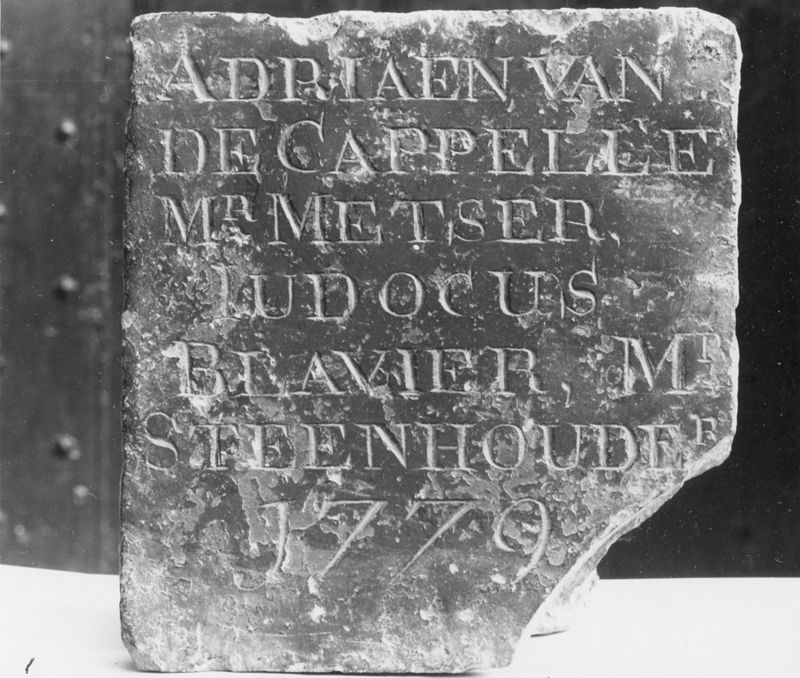 ADRIAEN VAN
DE CAPPELLE
MR METSER,
IUDOCUS
BLAVIER, MR
STEENHOUDER
1779